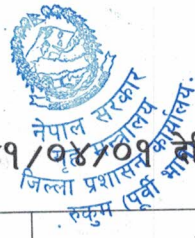 नेपाल सरकार
गृह मन्त्रालय
जिल्ला प्रशासन कार्यालय
रुकुम (पूर्वी भाग)
१/०४/०१